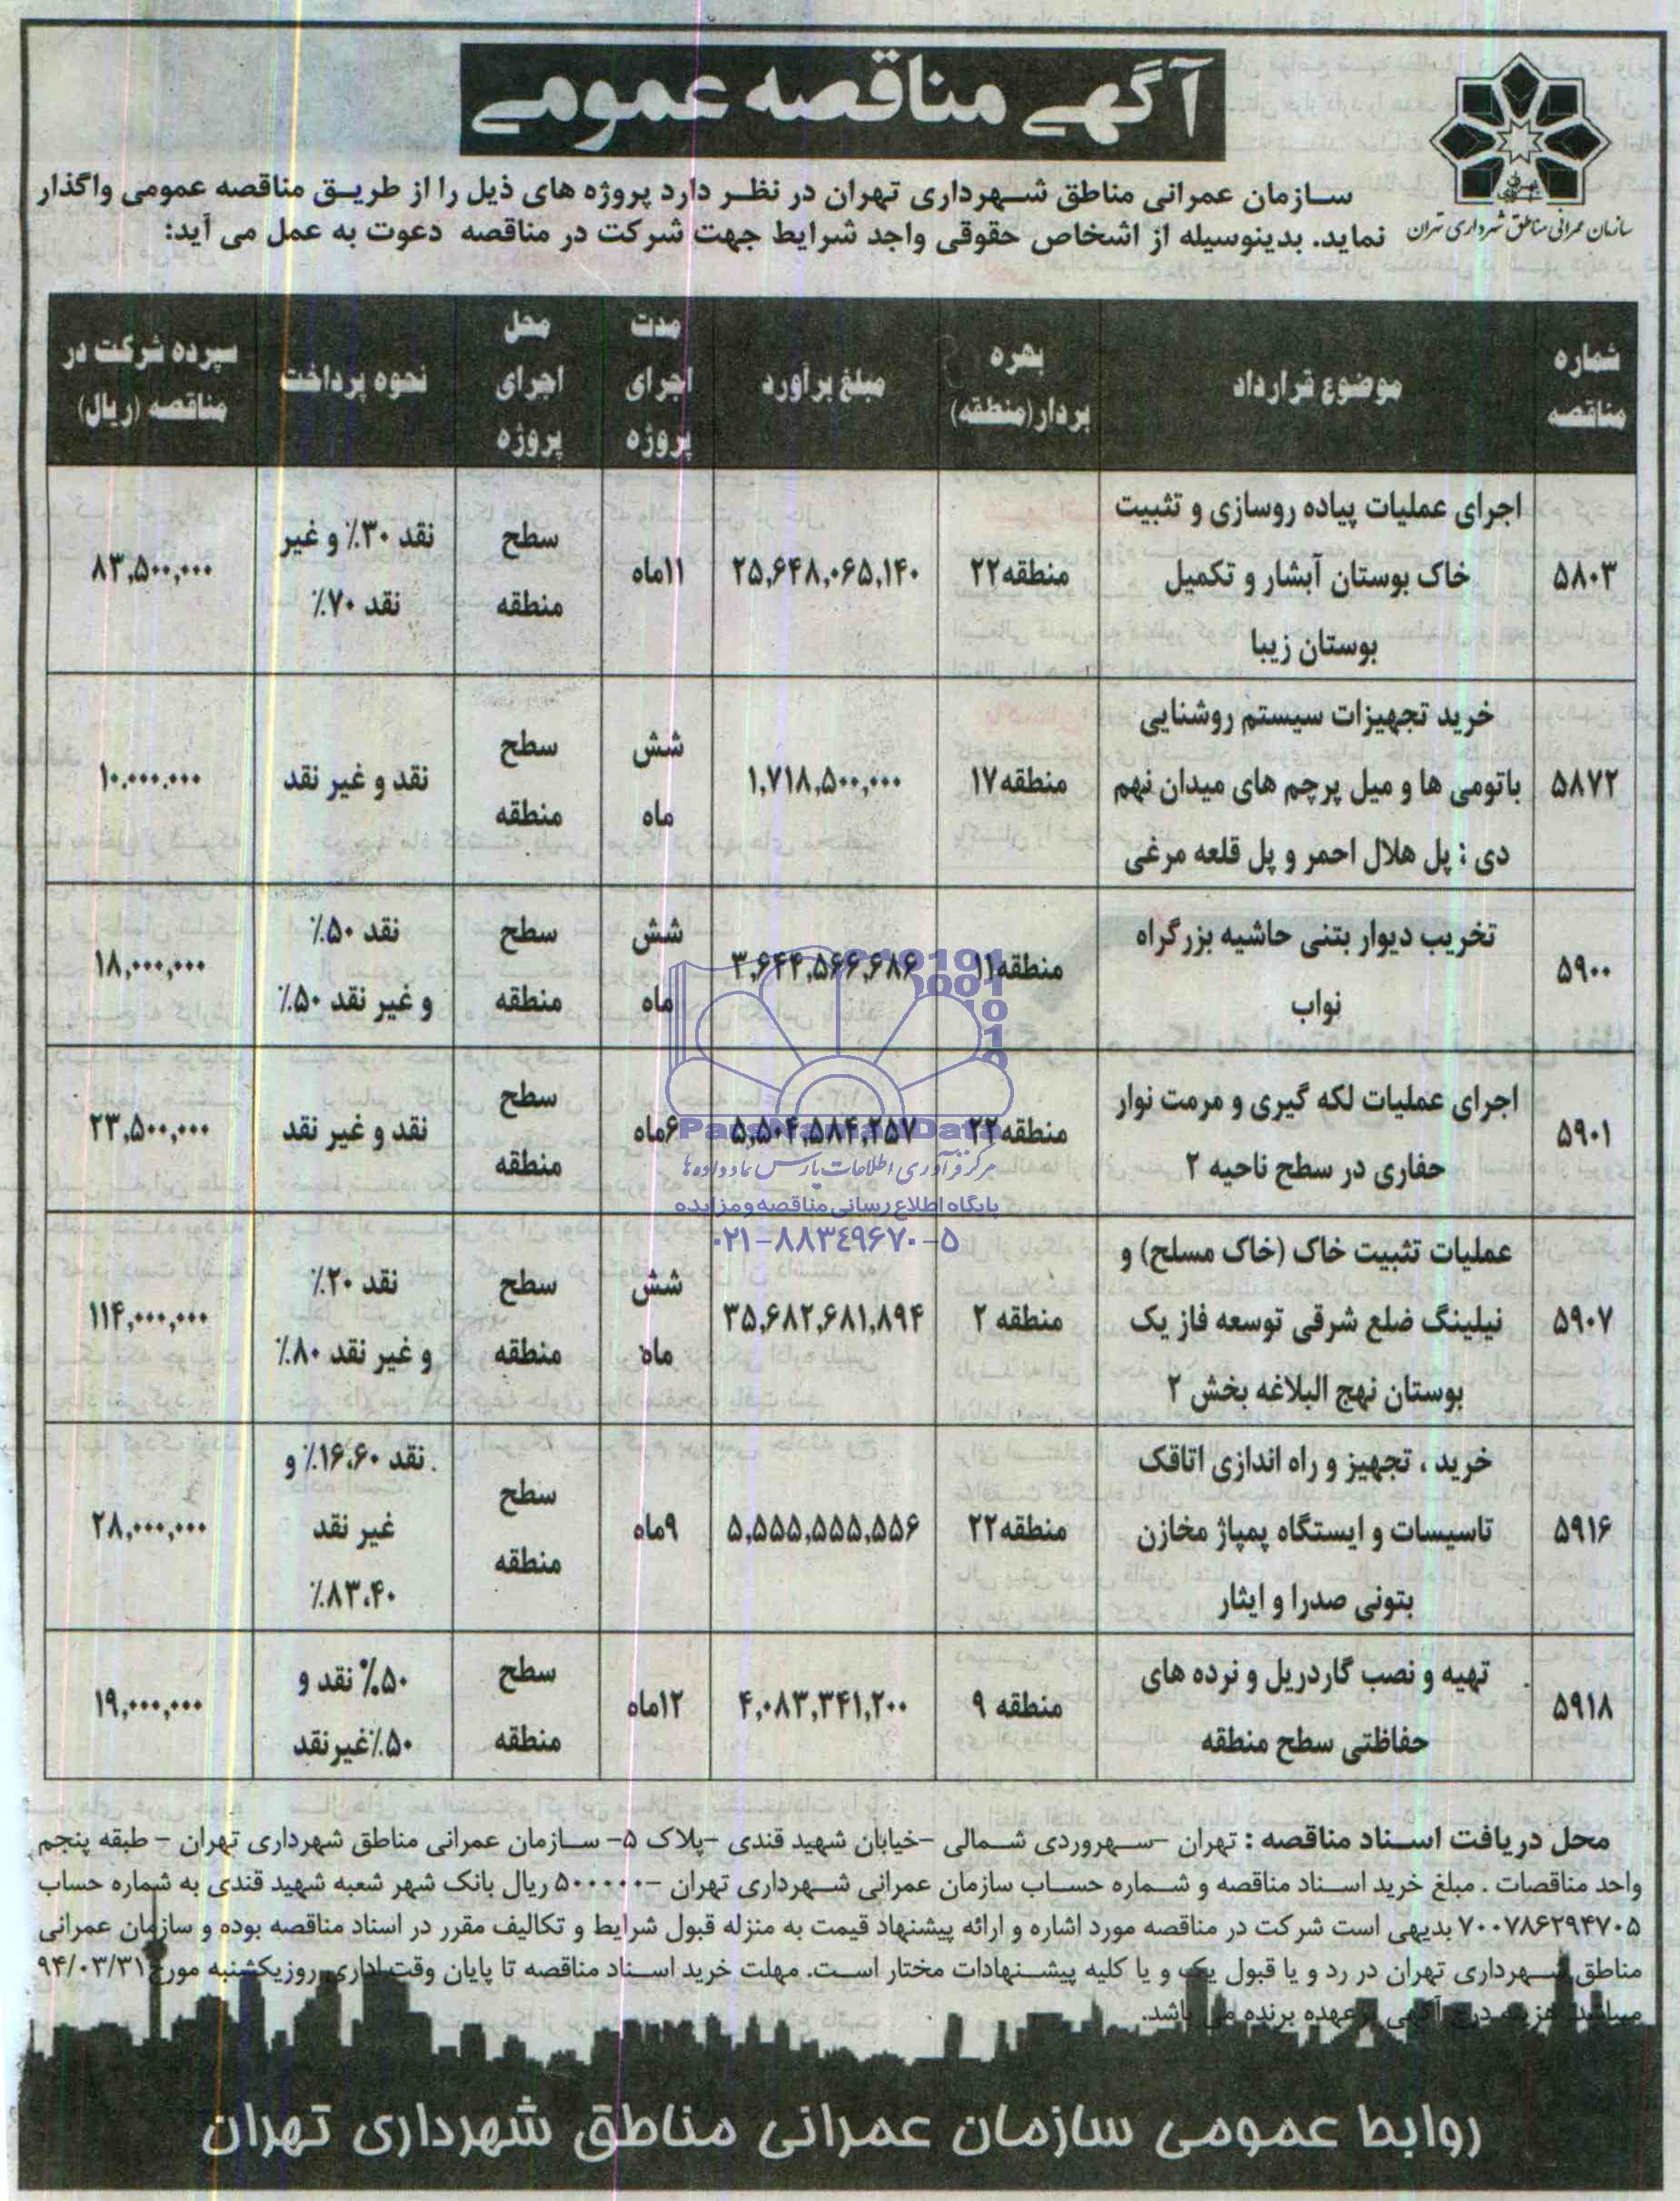 آگهی مناقصه عمومی
سازمان عمرانی مناطق شهرداری تهران
سازمان عمرانی مناطق شهرداری تهران در نظر دارد پروژه های ذیل را از طریق مناقصه عمومی واگذار
نماید. بدینوسیله از اشخاص حقوقی واجد شرایط جهت شرکت در مناقصه دعوت به عمل می آید:
شماره مناقصه | موضوع قرارداد | بهره بردار (منطقه) | مبلغ برآورد | مدت اجرای پروژه | محل اجرای پروژه | نحوه پرداخت | سپرده شرکت در مناقصه (ریال)
۵۸۰۳ | اجرای عملیات پیاده روسازی و تثبیت خاک بوستان آبشار و تکمیل بوستان زیبا | منطقه۲۲ | ۲۵,۶۴۸,۰۶۵,۱۴۰ | ۱۱ماه | سطح منطقه | نقد ۳۰٪ و غیر نقد ۷۰٪ | ۸۳,۵۰۰,۰۰۰
۵۸۷۲ | خرید تجهیزات سیستم روشنایی باتومی ها و میل پرچم های میدان نهم دی : پل هلال احمر و پل قلعه مرغی | منطقه۱۷ | ۱,۷۱۸,۵۰۰,۰۰۰ | شش ماه | سطح منطقه | نقد و غیر نقد | ۱۰.۰۰۰.۰۰۰
۵۹۰۰ | تخریب دیوار بتنی حاشیه بزرگراه نواب | منطقه۱۱ | ۳,۶۴۴,۵۶۶,۶۸۶ | شش ماه | سطح منطقه | نقد ۵۰٪ و غیر نقد ۵۰٪ | ۱۸,۰۰۰,۰۰۰
۵۹۰۱ | اجرای عملیات لکه گیری و مرمت نوار حفاری در سطح ناحیه ۲ | منطقه۲۲ | ۵,۵۰۴,۵۸۴,۲۵۷ | ۶ماه | سطح منطقه | نقد و غیر نقد | ۲۳,۵۰۰,۰۰۰
ParsNamadData
مرکز فرآوری اطلاعات پارس نماد داده ها
پایگاه اطلاع رسانی مناقصه و مزایده
۰۲۱-۸۸۳۴۹۶۷۰-۵
۵۹۰۷ | عملیات تثبیت خاک (خاک مسلح) و نیلینگ ضلع شرقی توسعه فاز یک بوستان نهج البلاغه بخش ۲ | منطقه ۲ | ۳۵,۶۸۲,۶۸۱,۸۹۴ | شش ماه | سطح منطقه | نقد ۲۰٪ و غیر نقد ۸۰٪ | ۱۱۴,۰۰۰,۰۰۰
۵۹۱۶ | خرید ، تجهیز و راه اندازی اتاقک تاسیسات و ایستگاه پمپاژ مخازن بتونی صدرا و ایثار | منطقه۲۲ | ۵,۵۵۵,۵۵۵,۵۵۶ | ۹ماه | سطح منطقه | نقد ۱۶،۶۰٪ و غیر نقد ۸۳،۴۰٪ | ۲۸,۰۰۰,۰۰۰
۵۹۱۸ | تهیه و نصب گاردریل و نرده های حفاظتی سطح منطقه | منطقه ۹ | ۴,۰۸۳,۳۴۱,۲۰۰ | ۱۲ماه | سطح منطقه | ۵۰٪ نقد و ۵۰٪غیرنقد | ۱۹,۰۰۰,۰۰۰
محل دریافت اسناد مناقصه : تهران -سهروردی شمالی -خیابان شهید قندی -پلاک ۵- سازمان عمرانی مناطق شهرداری تهران - طبقه پنجم
واحد مناقصات . مبلغ خرید اسناد مناقصه و شماره حساب سازمان عمرانی شهرداری تهران -۵۰۰۰۰۰ ریال بانک شهر شعبه شهید قندی به شماره حساب
۷۰۰۷۸۶۲۹۴۷۰۵ بدیهی است شرکت در مناقصه مورد اشاره و ارائه پیشنهاد قیمت به منزله قبول شرایط و تکالیف مقرر در اسناد مناقصه بوده و سازمان عمرانی
مناطق شهرداری تهران در رد و یا قبول یک و یا کلیه پیشنهادات مختار است. مهلت خرید اسناد مناقصه تا پایان وقت اداری روزیکشنبه مورخ ۹۴/۰۳/۳۱
میباشد. هزینه درج آگهی برعهده برنده می باشد.
روابط عمومی سازمان عمرانی مناطق شهرداری تهران